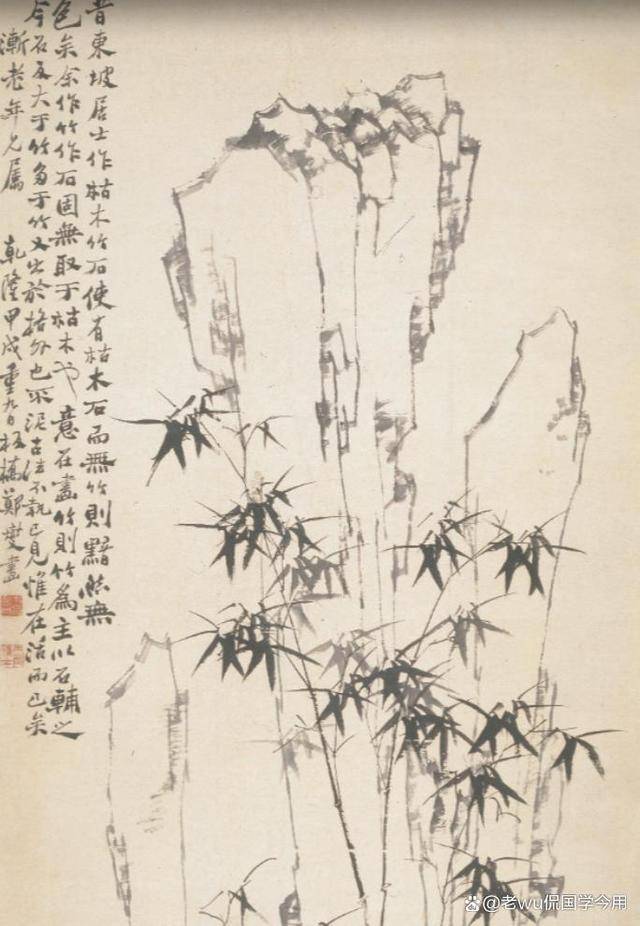 昔東坡居士作枯木竹石使有枯木石而無竹則黯然無
色矣余作竹作石固無取于枯木也意在畫竹則竹為主以石輔之
今石反大于竹多于竹又出於格外也不泥古法不執己見惟在活而已矣
漸老年兄屬 乾隆甲戌重九日板橋鄭燮畫
@老wu侃国学今用